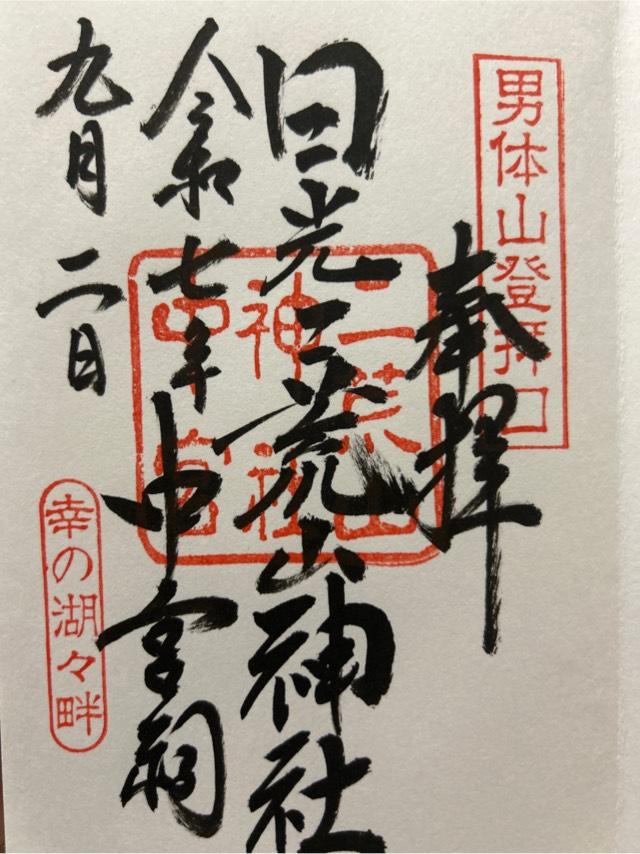 男体山登拝口
奉拝
日光二荒山神社
中宮祠
令和七年
九月二日
二荒山
神社
中宮
幸の湖々畔